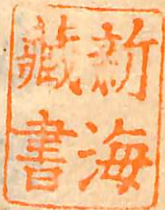 新海
藏書